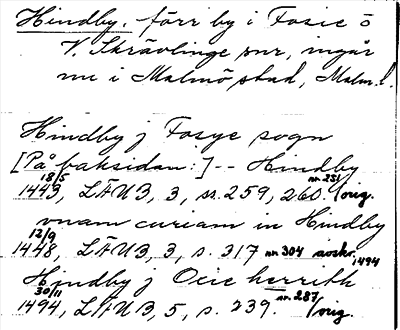 Hindby, förr by i Fosie o
V. Skrävlinge snr, ingår
nu i Malmö stad, Malm.l.
Hindby j Fosye sogn
[På baksidan:] -- Hindby
18/5 nr. 251
1443, LÄUB, 3, ss. 259, 260. orig.
vnam curiam in Hindby
12/9
1448, LÄUB, 3, s. 317 nr 304 1494
Hindby j Ocie herrith
30/11 nr. 287
1494, LÄUB, 5, s. 239. orig.